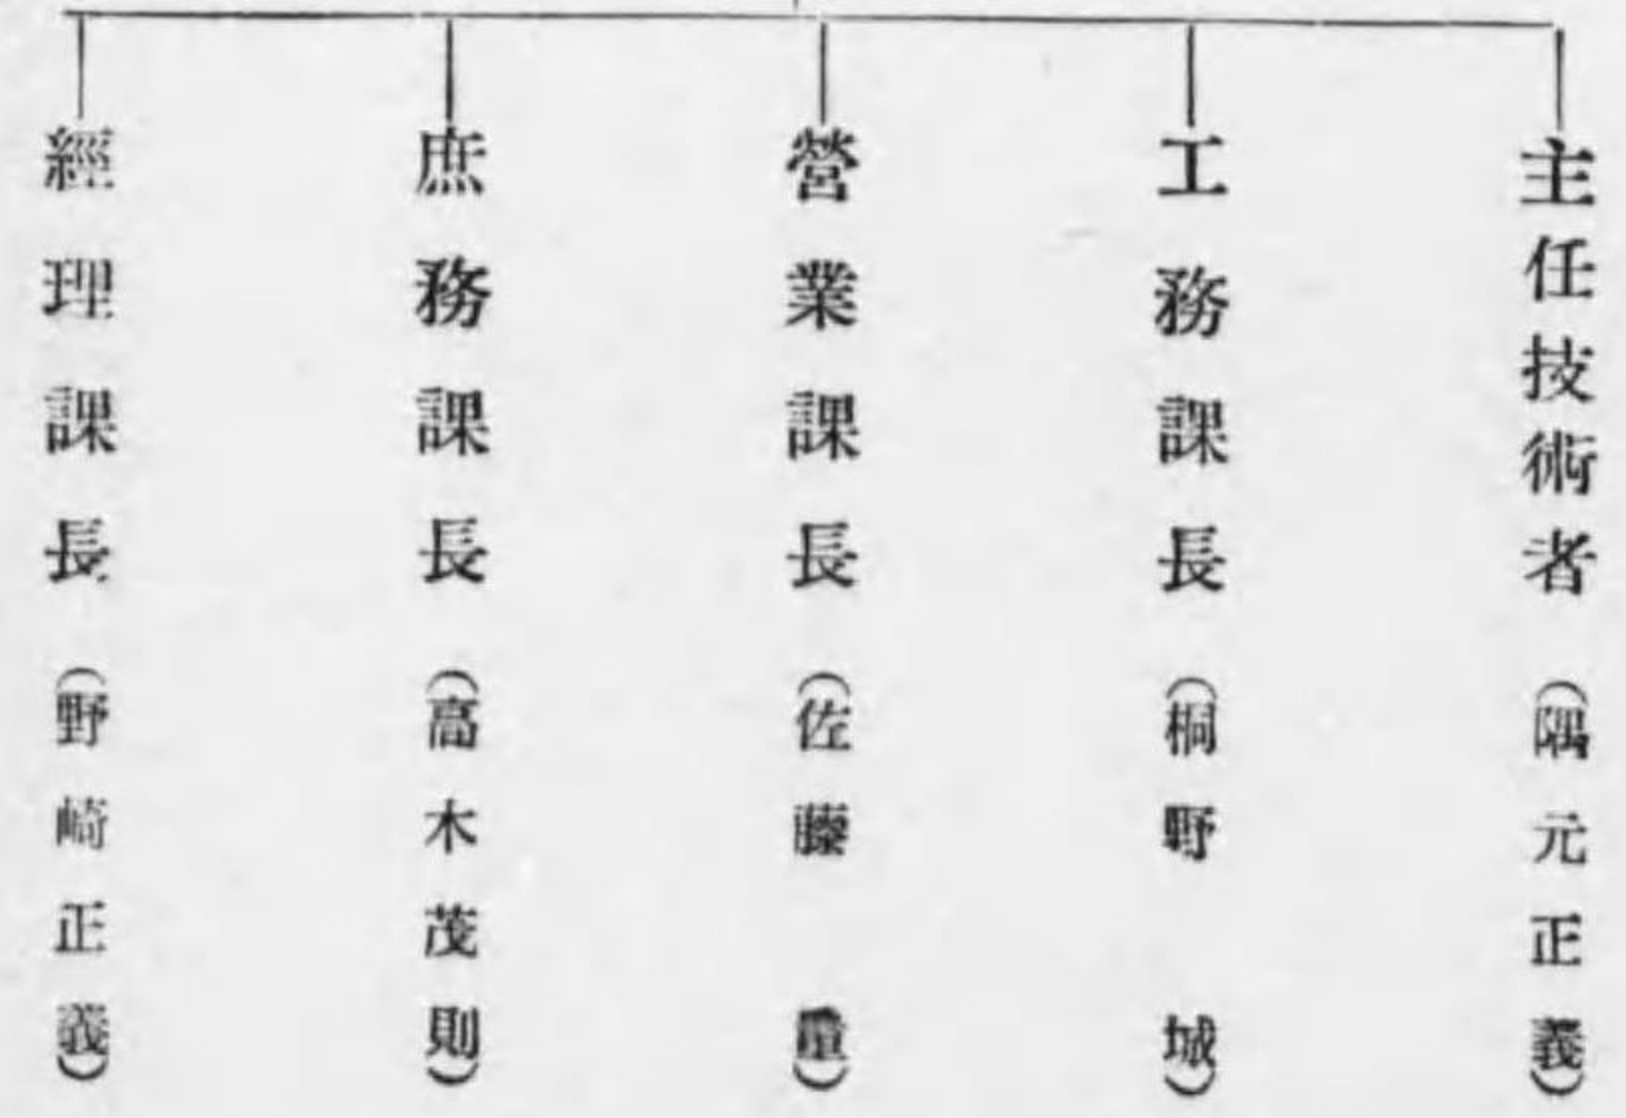 主任技術者（隅元正義）
工務課長（桐野城）
營業課長（佐藤）
庶務課長（高木茂則）
經理課長（野崎正義）